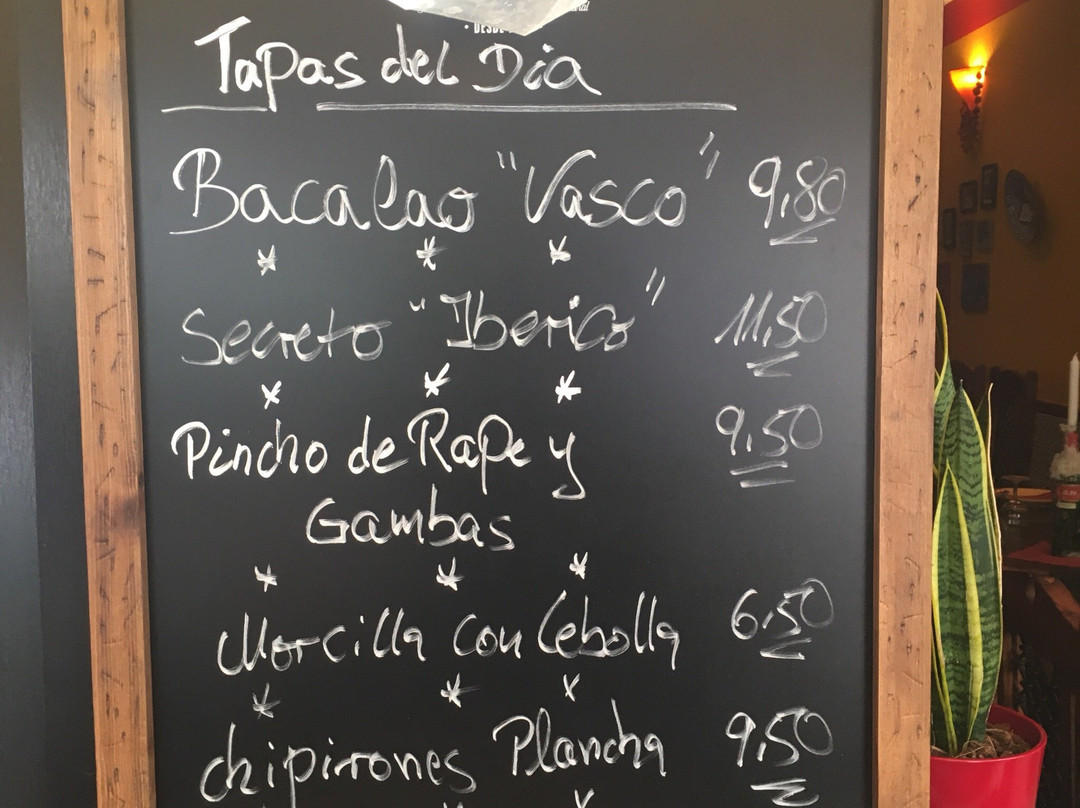 · DESDE
Tapas del Dia
Bacalao "Vasco" 9,80
* * *
Secreto "Iberico" 11,50
* * *
Pincho de Rape y 9,50
Gambas
* * *
Morcilla con Cebolla 6,50
* * *
chipirones Plancha 9,50